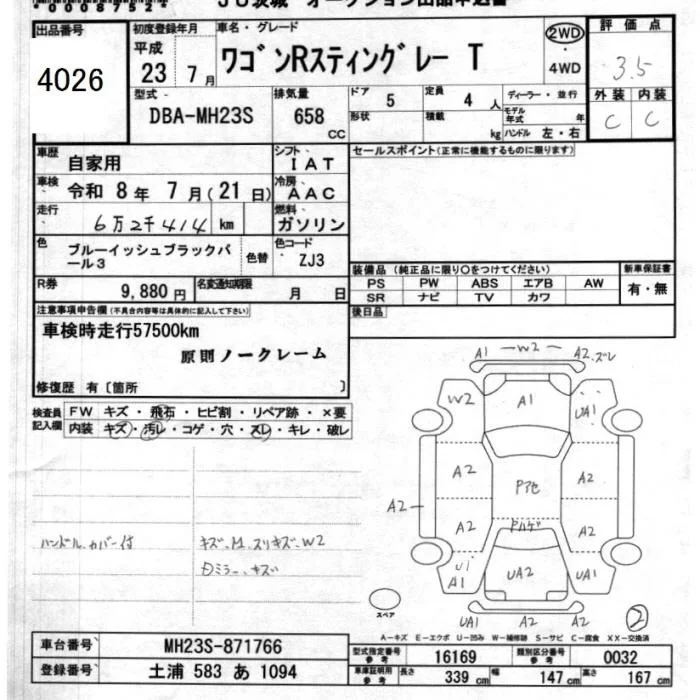 *0008752*
JU茨城 オークション出品申込書
出品番号
4026
初度登録年月
平成
23年 7月
車名・グレード
ワゴンRスティングレー T
2WD
・
4WD
評価点
3.5
外装 内装
C C
型式
DBA-MH23S
排気量
658
CC
ドア
5
形状
定員
4 人
積載
kg
ディーラー・並行
モデル年式 年
ハンドル 左・右
車歴
自家用
シフト
IAT
車検
令和 8年 7月(21日)
冷房
AAC
走行
6万2千414 km
燃料
ガソリン
色
ブルーイッシュブラックパール3
色替
色コード
ZJ3
R券
9,880円
名変通知期限
月 日
セールスポイント(正常に機能するものに限ります)
装備品(純正品に限り○をつけてください)
PS PW ABS エアB AW
SR ナビ TV カワ
新車保証書
有・無
後日品
注意事項申告欄(不具合内容等は具体的に記入して下さい)
車検時走行57500km
原則ノークレーム
修復歴 有〔箇所 〕
検査員記入欄
FW キズ・飛石・ヒビ割・リペア跡・×要
内装 キズ・汚レ・コゲ・穴・スレ・キレ・破レ
ハンドルカバー付
キズ、M、スリキズ、W2
ミラー、キズ
A1 W2 A2 ズレ
W2 A1 UA1
A2 A2
A2 A2 A2
Pハゲ
U1
A1 UA2 UA1
スペア
UA1 A2 A2
2
A-キズ E-エクボ U-凹み W-補修跡 S-サビ C-腐食 XX-交換済
車台番号
MH23S-871766
登録番号
土浦 583 あ 1094
型式指定番号 参考
16169
類別区分番号 参考
0032
車庫証明用 参考
長さ 339 cm 幅 147 cm 高さ 167 cm